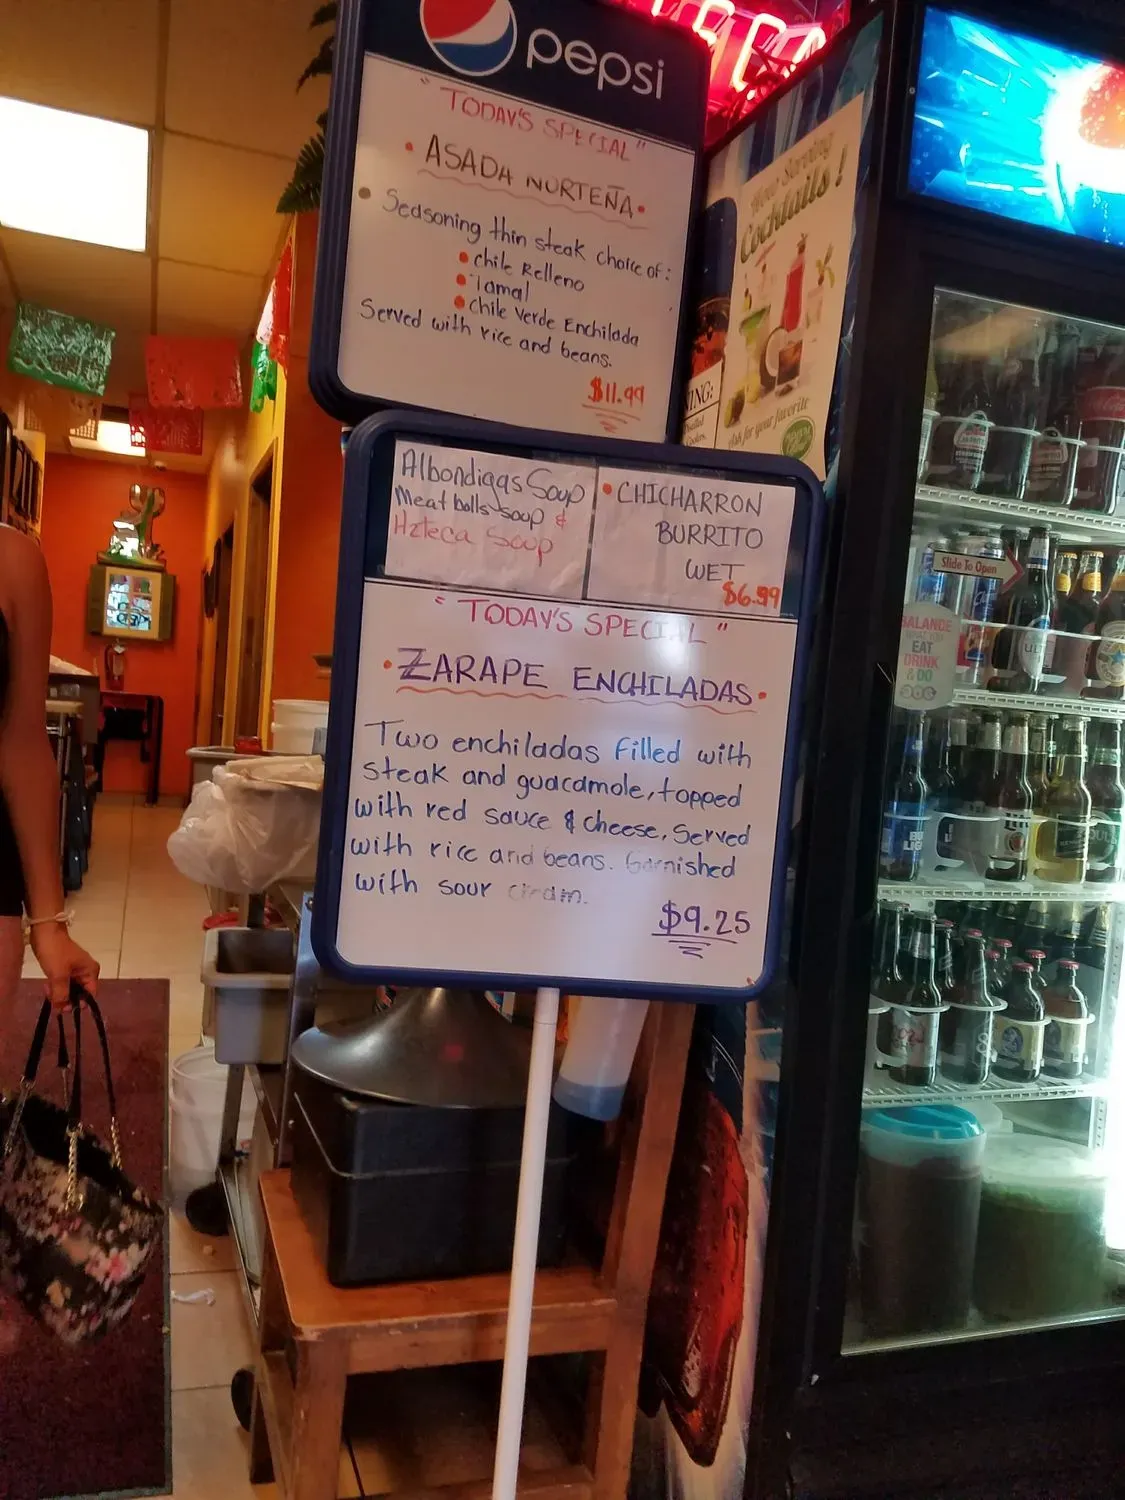 pepsi
"TODAY'S SPECIAL"
• ASADA NORTEÑA •
• Seasoning thin steak choice of:
• chile Relleno
• Tamal
• chile verde Enchilada
Served with rice and beans.
$11.99
Now Serving
Cocktails!
ING:
Ask for your favorite
Albondigas Soup
Meat balls soup &
Azteca Soup
• CHICHARRON
BURRITO
WET
$6.99
"TODAY'S SPECIAL"
• ZARAPE ENCHILADAS •
Two enchiladas filled with
steak and guacamole, topped
with red sauce & cheese, Served
with rice and beans. Garnished
with sour cream.
$9.25
Slide To Open
BALANCE
WHAT YOU
EAT
DRINK
& DO
BUD
LIGHT